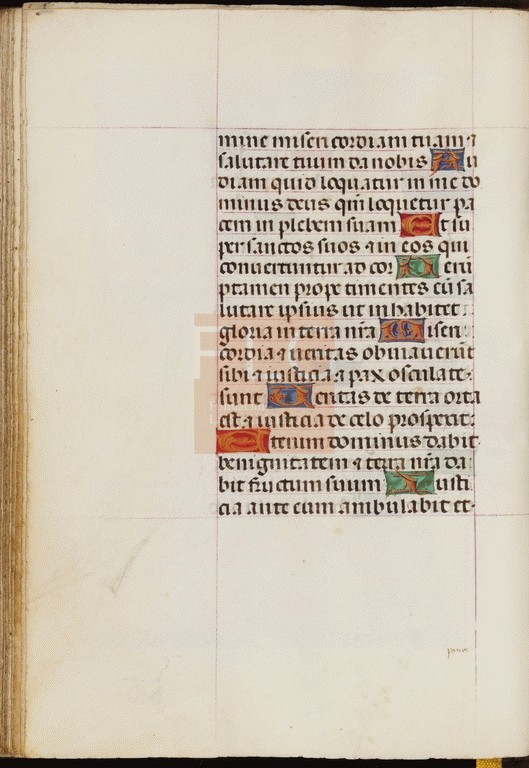 mine misericordiam tuam ⁊
salutare tuum da nobis Au
diam quid loquatur in me do
minus deus qm̄ loquetur pa
cem in plebem suam Et su
per sanctos suos ⁊ in eos qui
convertuntur ad cor Ueru
ptamen prope timentes eū sa
lutare ipsius ut inhabitet
gloria in terra nr̄a Miseri
cordia ⁊ veritas obviaverūt
sibi ⁊ iusticia ⁊ pax osculate
sunt Ueritas de terra orta
est ⁊ iusticia de celo prospexit
Etenim dominus dabit
benignitatem ⁊ terra nr̄a da
bit fructum suum Iusti
cia ante eum ambulabit et